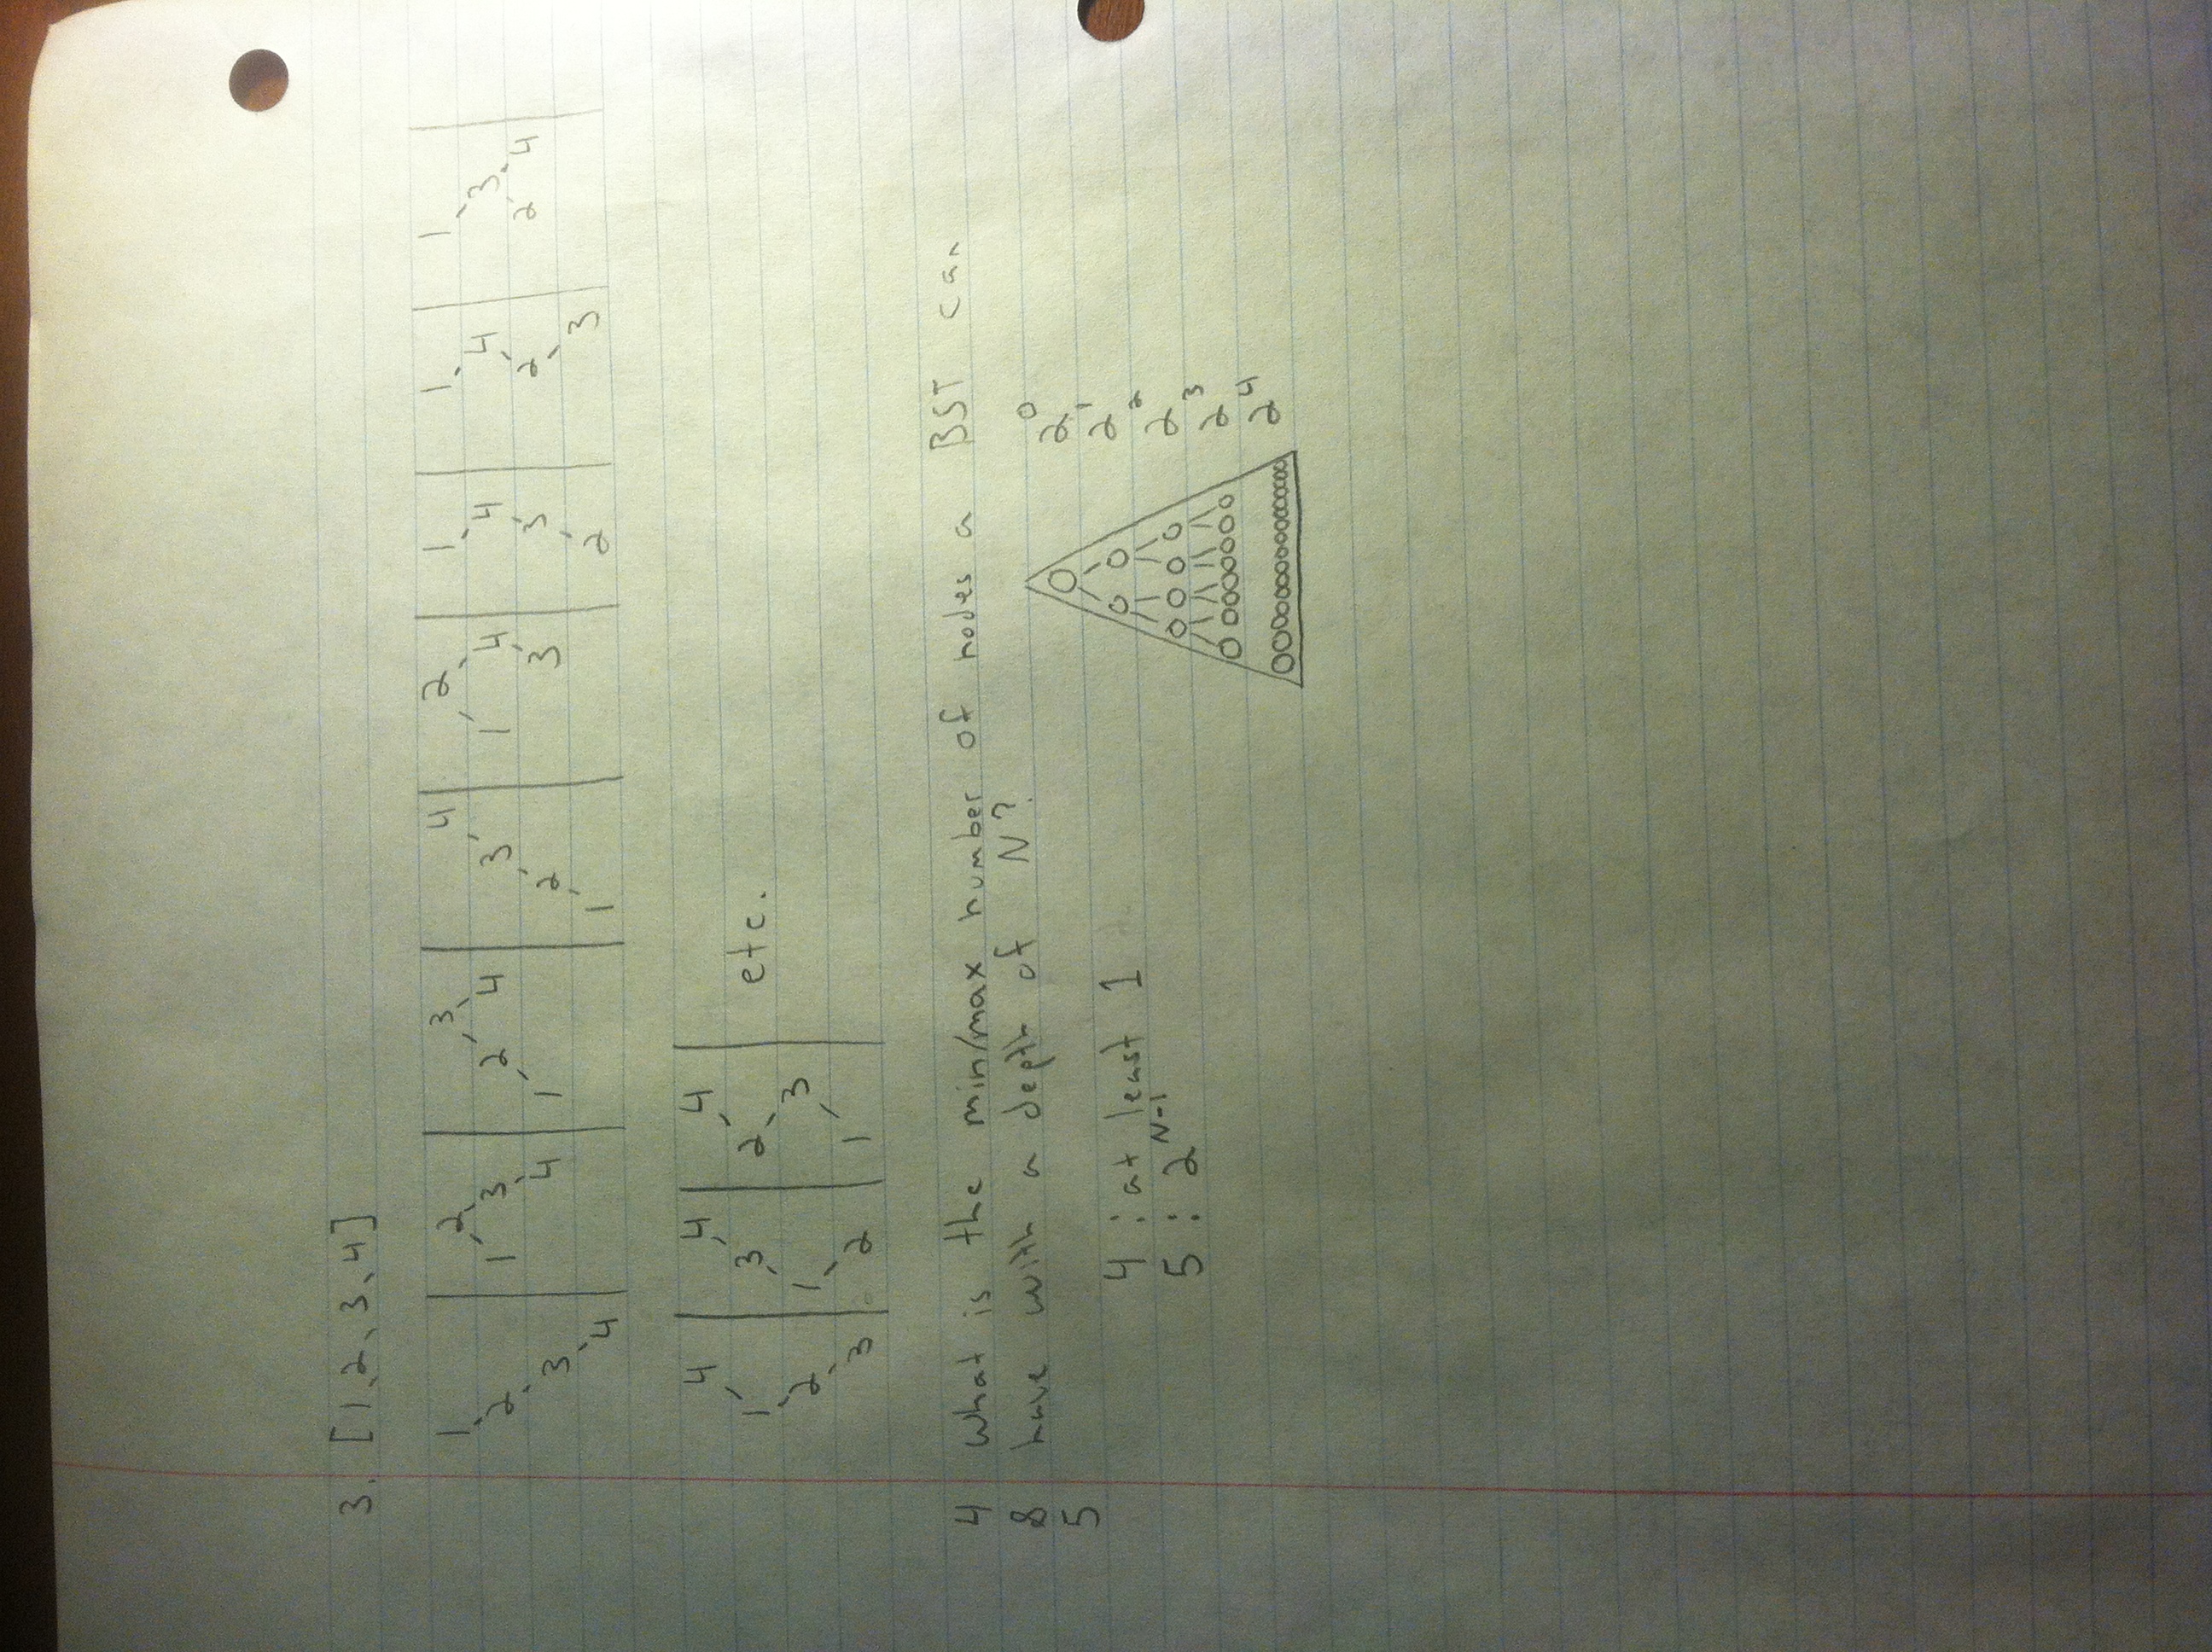 3. [1, 2, 3, 4]
1 2 3 4 2 1 1 1
2 1 3 2 4 3 1 4 4 4 3
3 4 1 2 3 3 2 2 4
4 1 2 3
4 4 4
1 3 2 etc.
2 1 3
3 2 1
4 What is the min/max number of nodes a BST can
8 have with a depth of N?
5
4 : at least 1
5 : 2^N-1
2^0
2^1
2^2
2^3
2^4